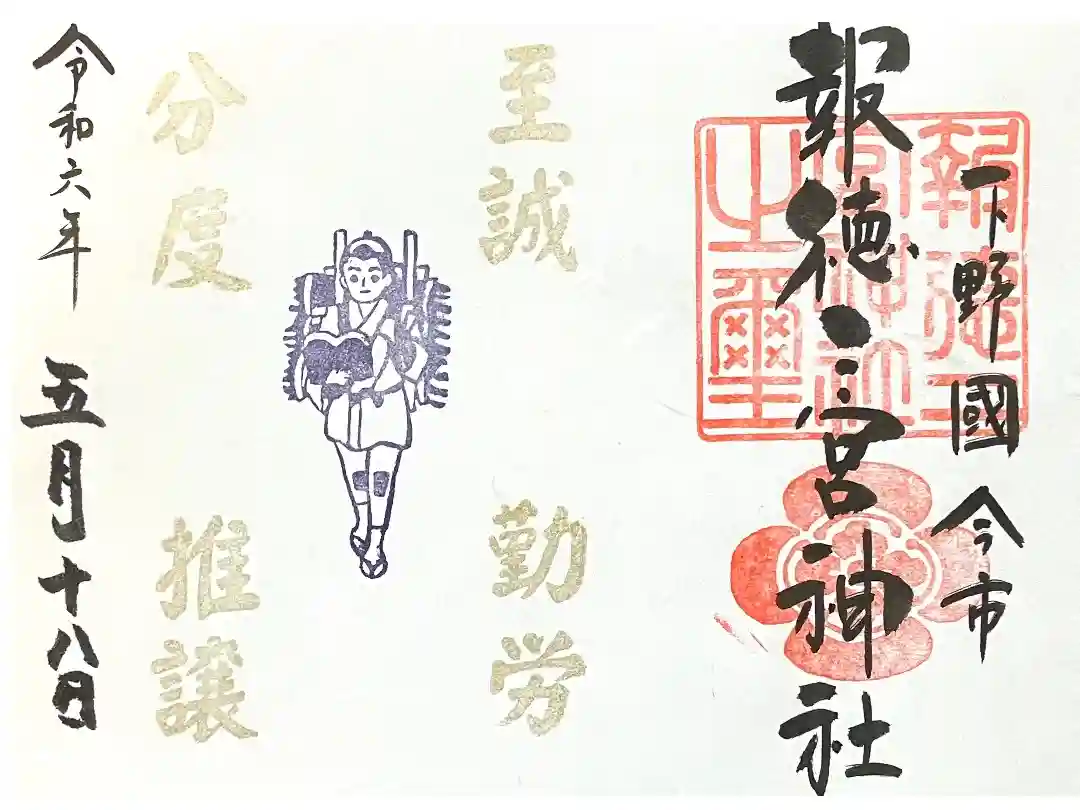 下野國 今市
報徳二宮神社
報徳二
宮神社
之璽
至誠
勤労
分度
推譲
令和六年 五月十八日